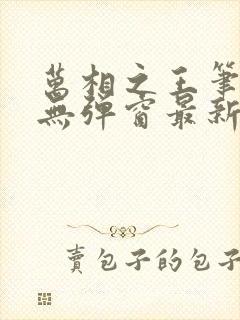 萬相之王筆
無彈窗最新
賣包子的包子